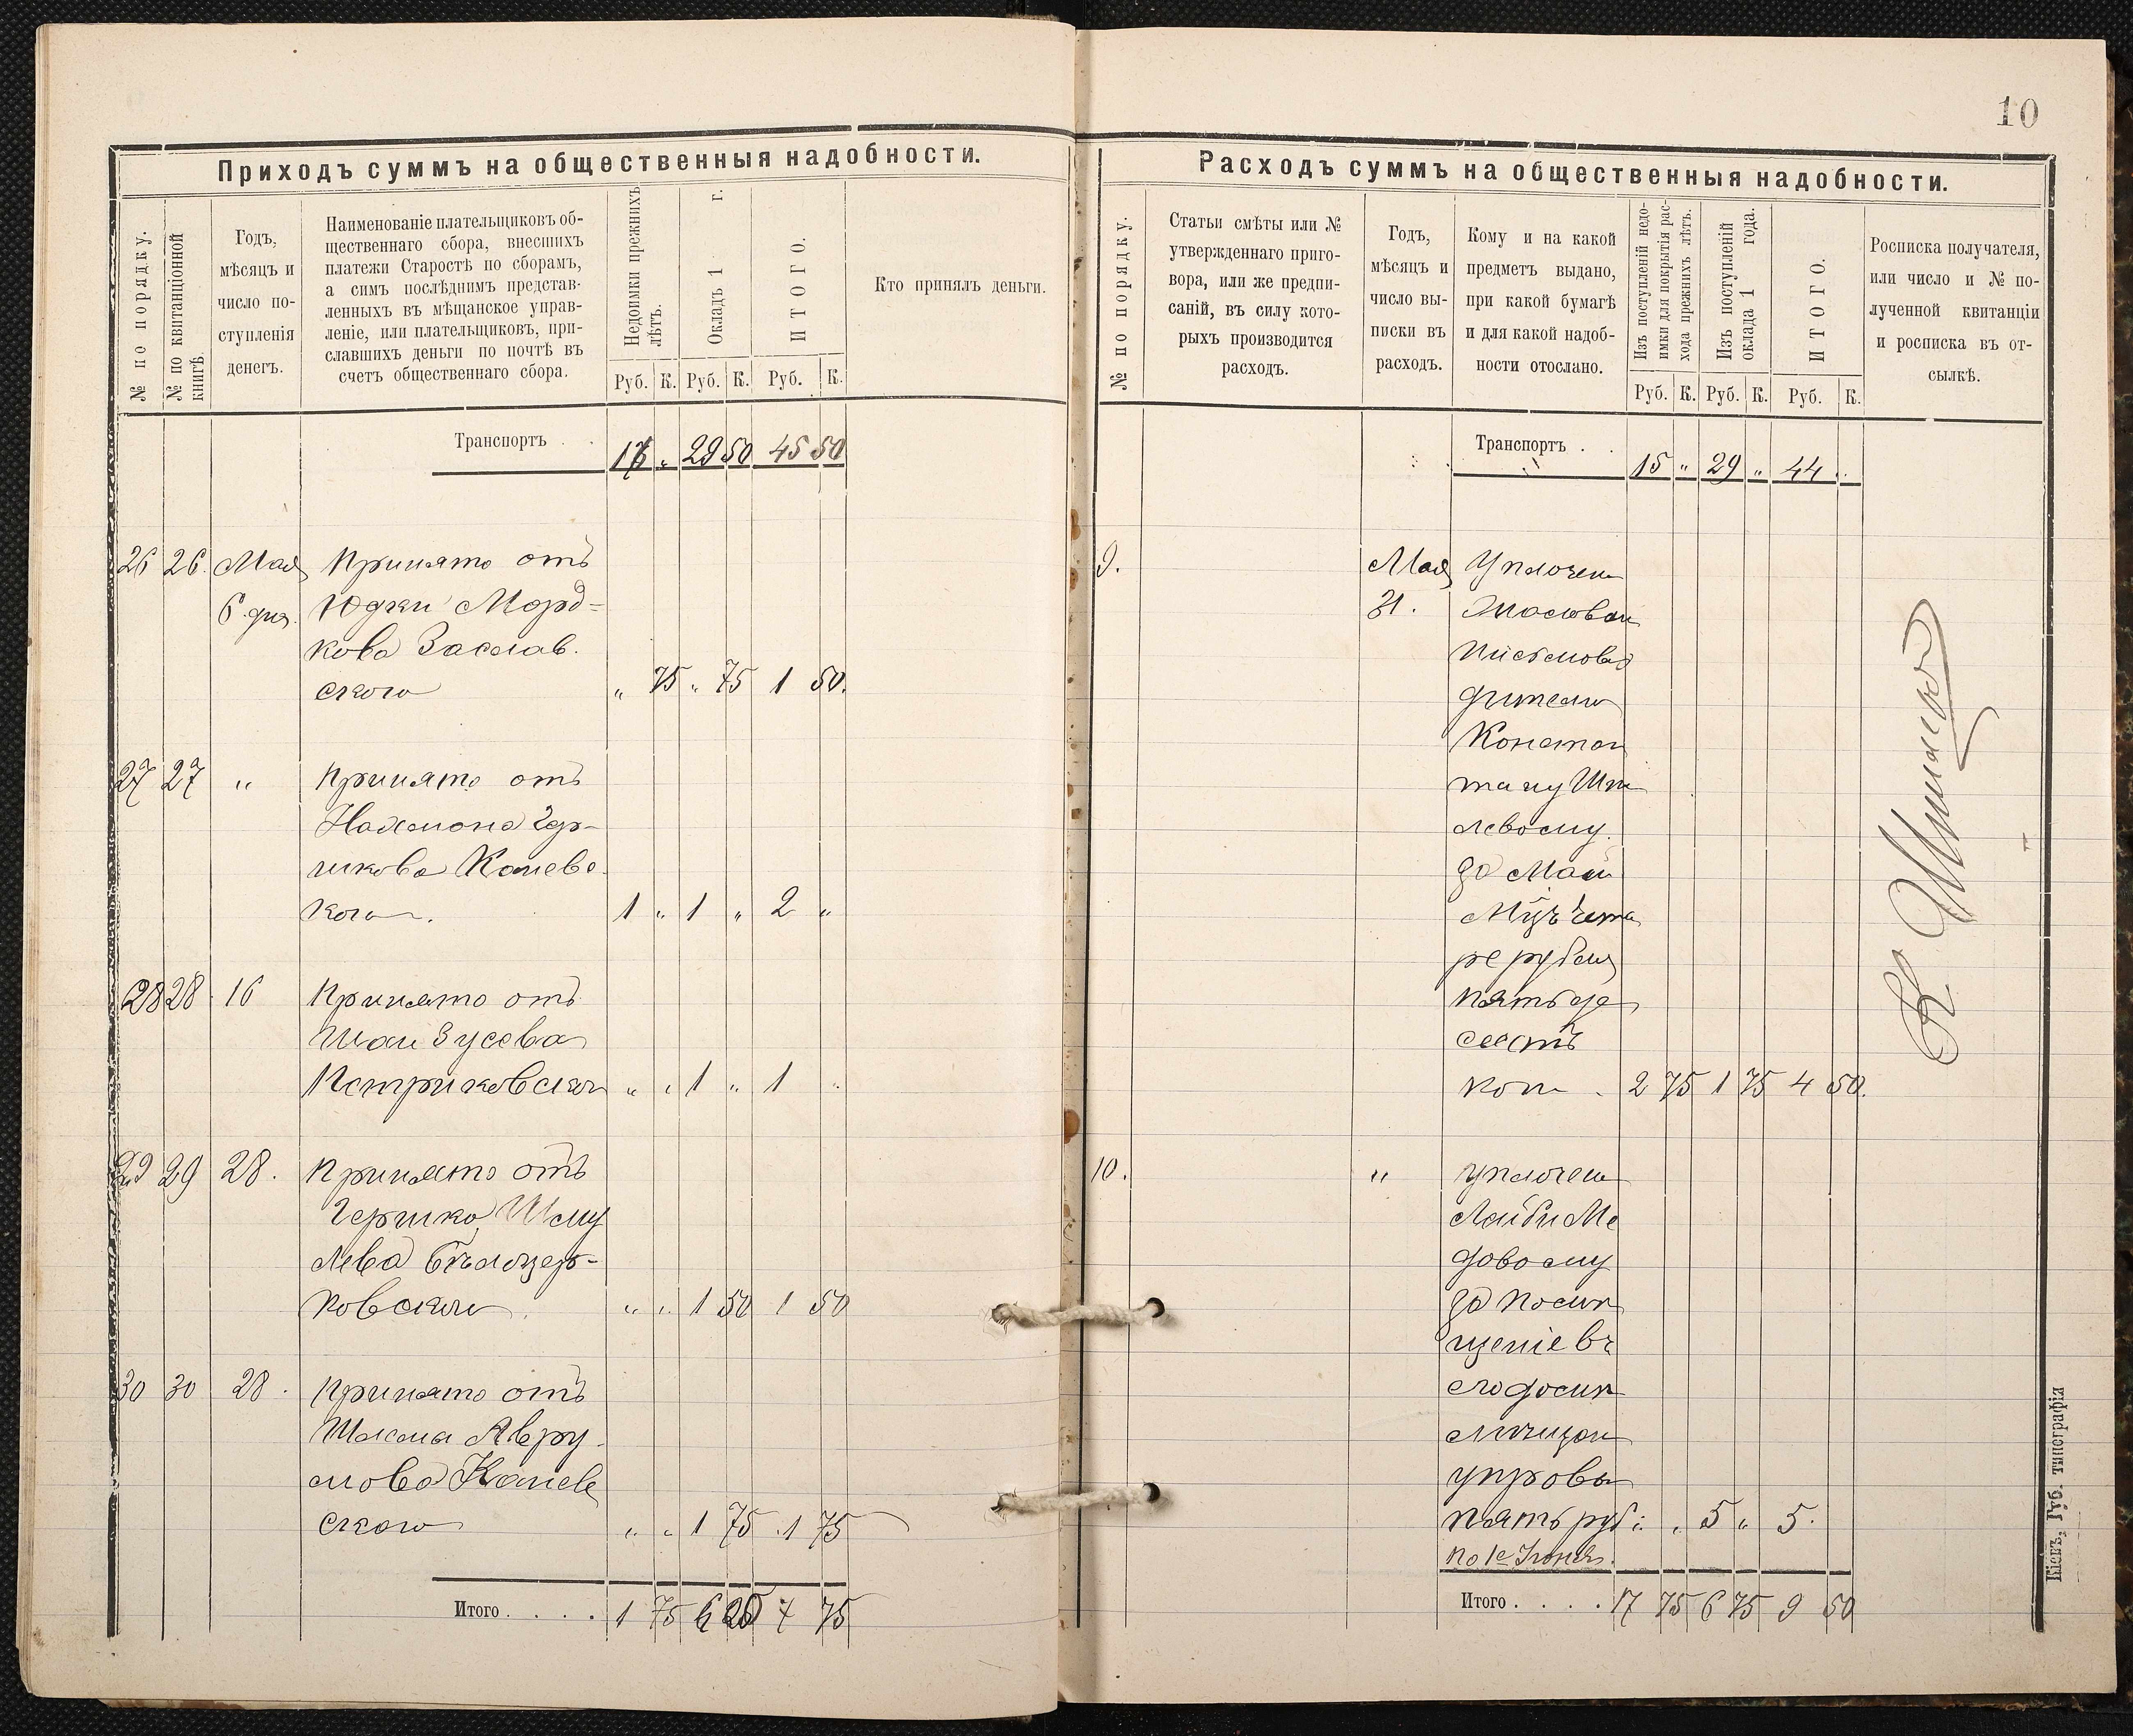 10
Приходъ суммъ на общественныя надобности.
№ по порядку.
№ по квитанціонной
книгѣ.
Годъ,
мѣсяцъ и
число по-
ступленія
денегъ.
Наименованіе плательщиковъ об-
щественнаго сбора, внесшихъ
платежи Старостѣ по сборамъ,
а симъ послѣднимъ представ-
ленныхъ въ мѣщанское управ-
леніе, или плательщиковъ, при-
славшихъ деньги по почтѣ въ
счетъ общественнаго сбора.
Недоимки прежнихъ
лѣтъ.
Окладъ 1 г.
ИТОГО.
Руб. К. Руб. К. Руб. К.
Кто принялъ деньги.
Транспортъ . . 16 „ 29 50 45 50
26 26. Мая Принято отъ
6 дня. Юдки Морд-
кова Заслав.
ского „ 75 „ 75 1 50.
27 27 „ Принято отъ
Нахмона Гер-
шкова Каневс
кого. 1 „ 1 „ 2 „
28 28 16 Принято отъ
Шаи Зусева
Петриковского „ „ 1 „ 1 „
29 29 28. Принято отъ
Гершко Шму
лева Бѣлоцер-
ковского „ „ 1 50 1 50
30 30 28. Принято отъ
Авру
мова Канев
ского „ „ 1 75 1 75
Итого . . . . 1 75 6 25 7 75
Расходъ суммъ на общественныя надобности.
№ по порядку.
Статьи смѣты или №
утвержденнаго приго-
вора, или же предпи-
саній, въ силу кото-
рыхъ производится
расходъ.
Годъ,
мѣсяцъ и
число вы-
писки въ
расходъ.
Кому и на какой
предметъ выдано,
при какой бумагѣ
и для какой надоб-
ности отослано.
Изъ поступленій недо-
имки для покрытія рас-
хода прежнихъ лѣтъ.
Изъ поступленій
оклада 1 года.
ИТОГО.
Руб. К. Руб. К. Руб. К.
Росписка получателя,
или число и № по-
лученной квитанціи
и росписка въ от-
сылкѣ.
Транспортъ . . 15 „ 29 „ 44 „
9. Мая Уплочен
31.
Письмово
дителю
Констан
тину Шпи
левому
за Май
Мцъ четы
ре рубля
пятьде
сятъ
коп. 2 75 1 75 4 50.
10. „ уплочен
Лейби Ме
довому
за помѣ
щеніе въ
его домѣ
мѣщан
управы
пять руб: „ 5 „ 5.
по 1е Іюня.
Итого . . . . 17 75 6 75 9 50
Кіевъ, Губ. типографія